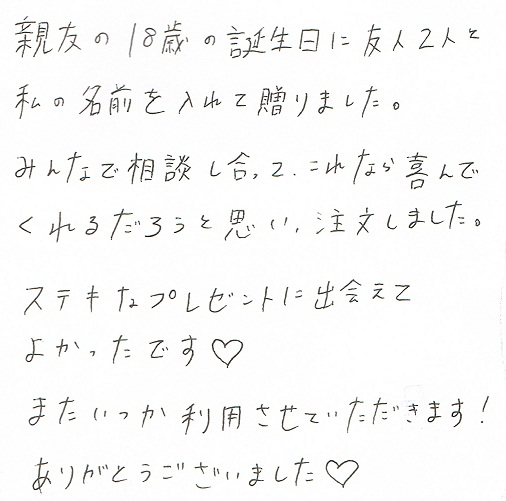 親友の18歳の誕生日に友人2人と
私の名前を入れて贈りました。
みんなで相談し合って、これなら喜んで
くれるだろうと思い、注文しました。
ステキなプレゼントに出会えて
よかったです♡
またいつか利用させていただきます!
ありがとうございました♡